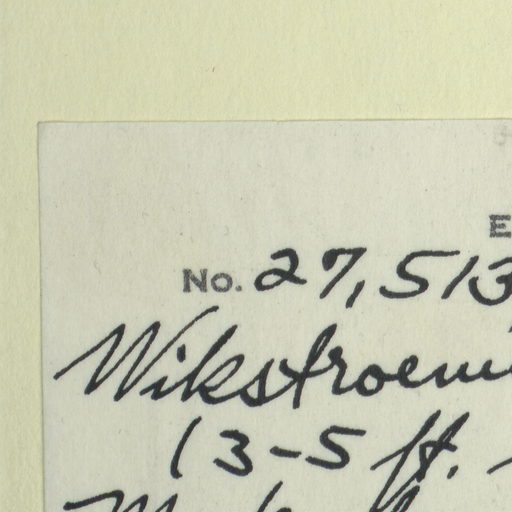 No. 27,513
Wikstroemi
(3-5 ft.